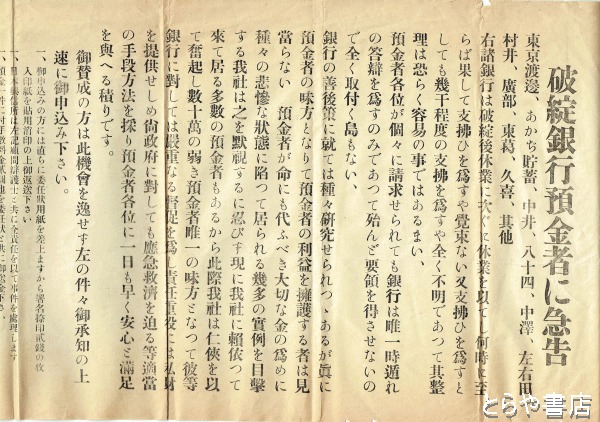 破綻銀行預金者に急告
東京渡邊、あかぢ貯蓄、中井、八十四、中澤、左右田、
村井、廣部、東葛、久喜、其他
右諸銀行は破綻後休業に次ぐに休業を以てし何時に至
らば果して支拂ひを爲すや覺束ない又支拂ひを爲すと
しても幾千程度の支拂を爲すや全く不明であつて其整
理は恐らく容易の事ではあるまい、
預金者各位が個々に請求せられても銀行は唯一時遁れ
の答辯を爲すのみであつて殆んど要領を得させないの
で全く取付く島もない、
銀行の善後策に就ては種々硏究せられつゝあるが眞に
預金者の味方となりて預金者の利益を擁護する者は見
當らない 預金者が命にも代ふべき大切な金の爲めに
種々の悲慘な狀態に陷つて居られる幾多の實例を目擊
する我社は之を默視するに忍びず現に我社に賴依つて
來て居る多數の預金者もあるから此際我社は仁俠を以
て奮起し數十萬の弱き預金者唯一の味方となつて彼等
銀行に對しては嚴重なる督促を爲し責任重役には私財
を提供せしめ尙政府に對しても應急救濟を迫る等適當
の手段方法を採り預金者各位に一日も早く安心と滿足
を與へる積りです。
御賛成の方は此機會を逸せず左の件々御承知の上
速に御申込み下さい。
一、御申込みの方には直ちに委任狀用紙を差上ますから署名捺印貳錢の收
入印紙を貼用消印の上御返送下さい
とらや書店